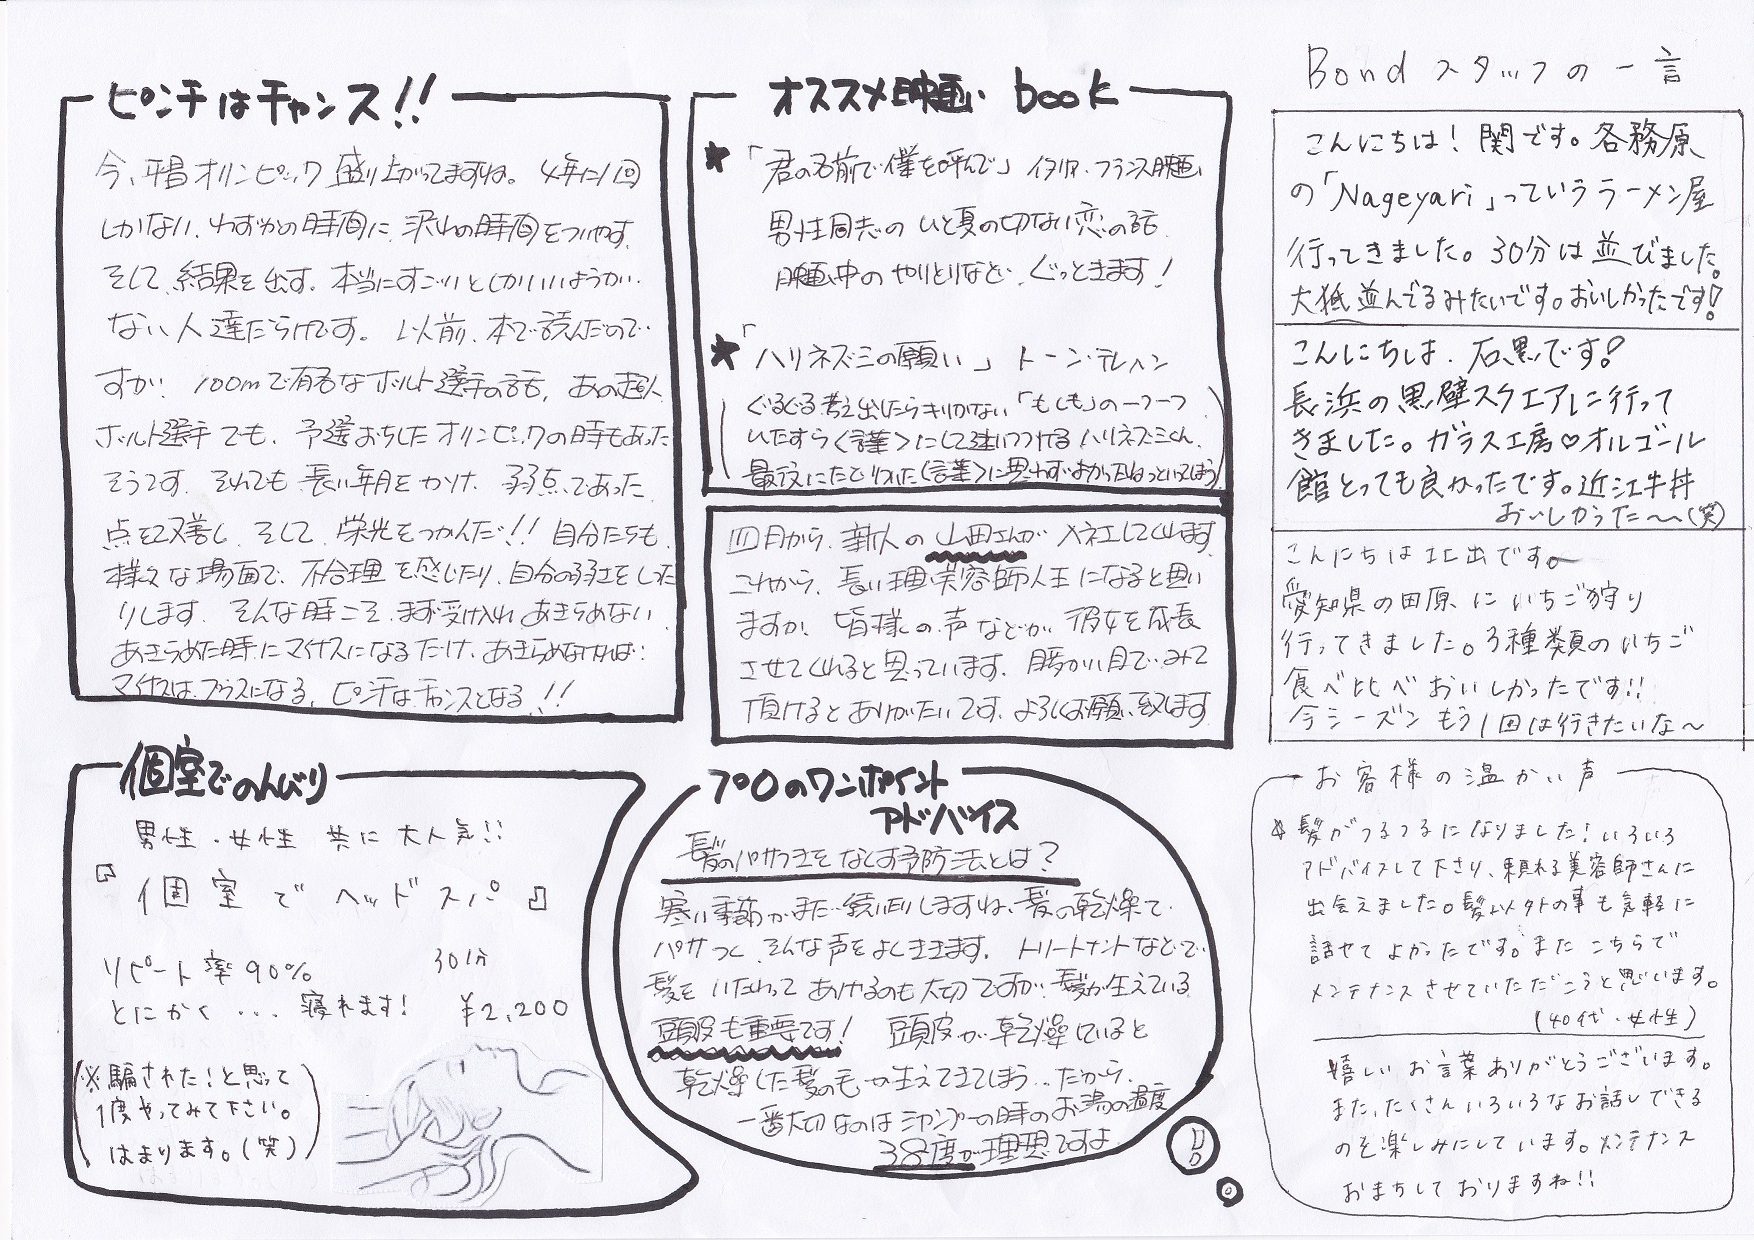 ピンチはチャンス!!
今、平昌オリンピック盛り上がってますね。4年に1回
しかない、わずかの時間に、沢山の時間をついやす。
そして、結果を出す。本当にすごいとしかいいようが
ない人達だらけです。以前、本で読んだので
すが、100mで有名なボルト選手の話。あの超人
ボルト選手でも、予選おちしたオリンピックの時もあった
そうです。それでも長い年月をかけ、弱点であった
点を改善し、そして、栄光をつかんだ!!自分たちも、
様々な場面で、不合理を感じたり、自分の弱さをしった
りします。そんな時こそ、まず受け入れあきらめない
あきらめた時にマイナスになるだけ、あきらめなければ
マイナスは、プラスになる。ピンチはチャンスとなる!!
オススメ映画 book
★「君の名前で僕を呼んで」イタリア・フランス映画
男性同志のひと夏の切ない恋の話
映画中のやりとりなど、ぐっときます!
★「ハリネズミの願い」トーン・テレヘン
(ぐるぐる考え出したらキリがない「もしも」の一つ一つ
ひたすら〈言葉〉にして迷いつづけるハリネズミくん。
最後にたどりついた〈言葉〉に思わずよかったねっといってしまう)
四月から、新人の山田さんが入社してくれます。
これから、長い理・美容師人生になると思い
ますが、皆様の声などが、彼女を成長
させてくれると思っています。暖かい目でみて
頂けるとありがたいです。よろしくお願い致します
Bond スタッフの一言
こんにちは!関です。各務原
の「Nageyari」っていうラーメン屋
行ってきました。30分は並びました。
大抵並んでるみたいです。おいしかったです!
こんにちは、石黒です!
長浜の黒壁スクエアに行って
きました。ガラス工房♡オルゴール
館とっても良かったです。近江牛丼
おいしかった〜(笑)
こんにちは北出です。
愛知県の田原にいちご狩り
行ってきました。3種類のいちご
食べ比べおいしかったです!!
今シーズンもう1回は行きたいな〜
個室でのんびり
男性・女性 共に大人気!!
『個室でヘッドスパ』
リピート率90% 30分
とにかく...寝れます! ¥2,200
(※騙された!と思って
1度やってみて下さい。
はまります。(笑))
プロのワンポイント
アドバイス
髪のパサつきをなくす予防法とは?
寒い季節がまだ続いたりしますね、髪の乾燥で
パサつく、そんな声をよくききます。トリートメントなどで
髪をいたわってあげるのも大切ですが、髪が生えている
頭皮も重要です!頭皮が乾燥していると
乾燥した髪の毛が生えてきてしまう..だから、
一番大切なのはシャンプーの時のお湯の温度
38度が理想ですよ
お客様の温かい声
☆髪がつるつるになりました!いろいろ
アドバイスして下さり、頼れる美容師さんに
出会えました。髪以外の事も気軽に
話せてよかったです。またこちらで
メンテナンスさせていただこうと思います。
(40代・女性)
嬉しいお言葉ありがとうございます。
また、たくさんいろいろなお話しできる
のを楽しみにしています。メンテナンス
おまちしておりますね!!